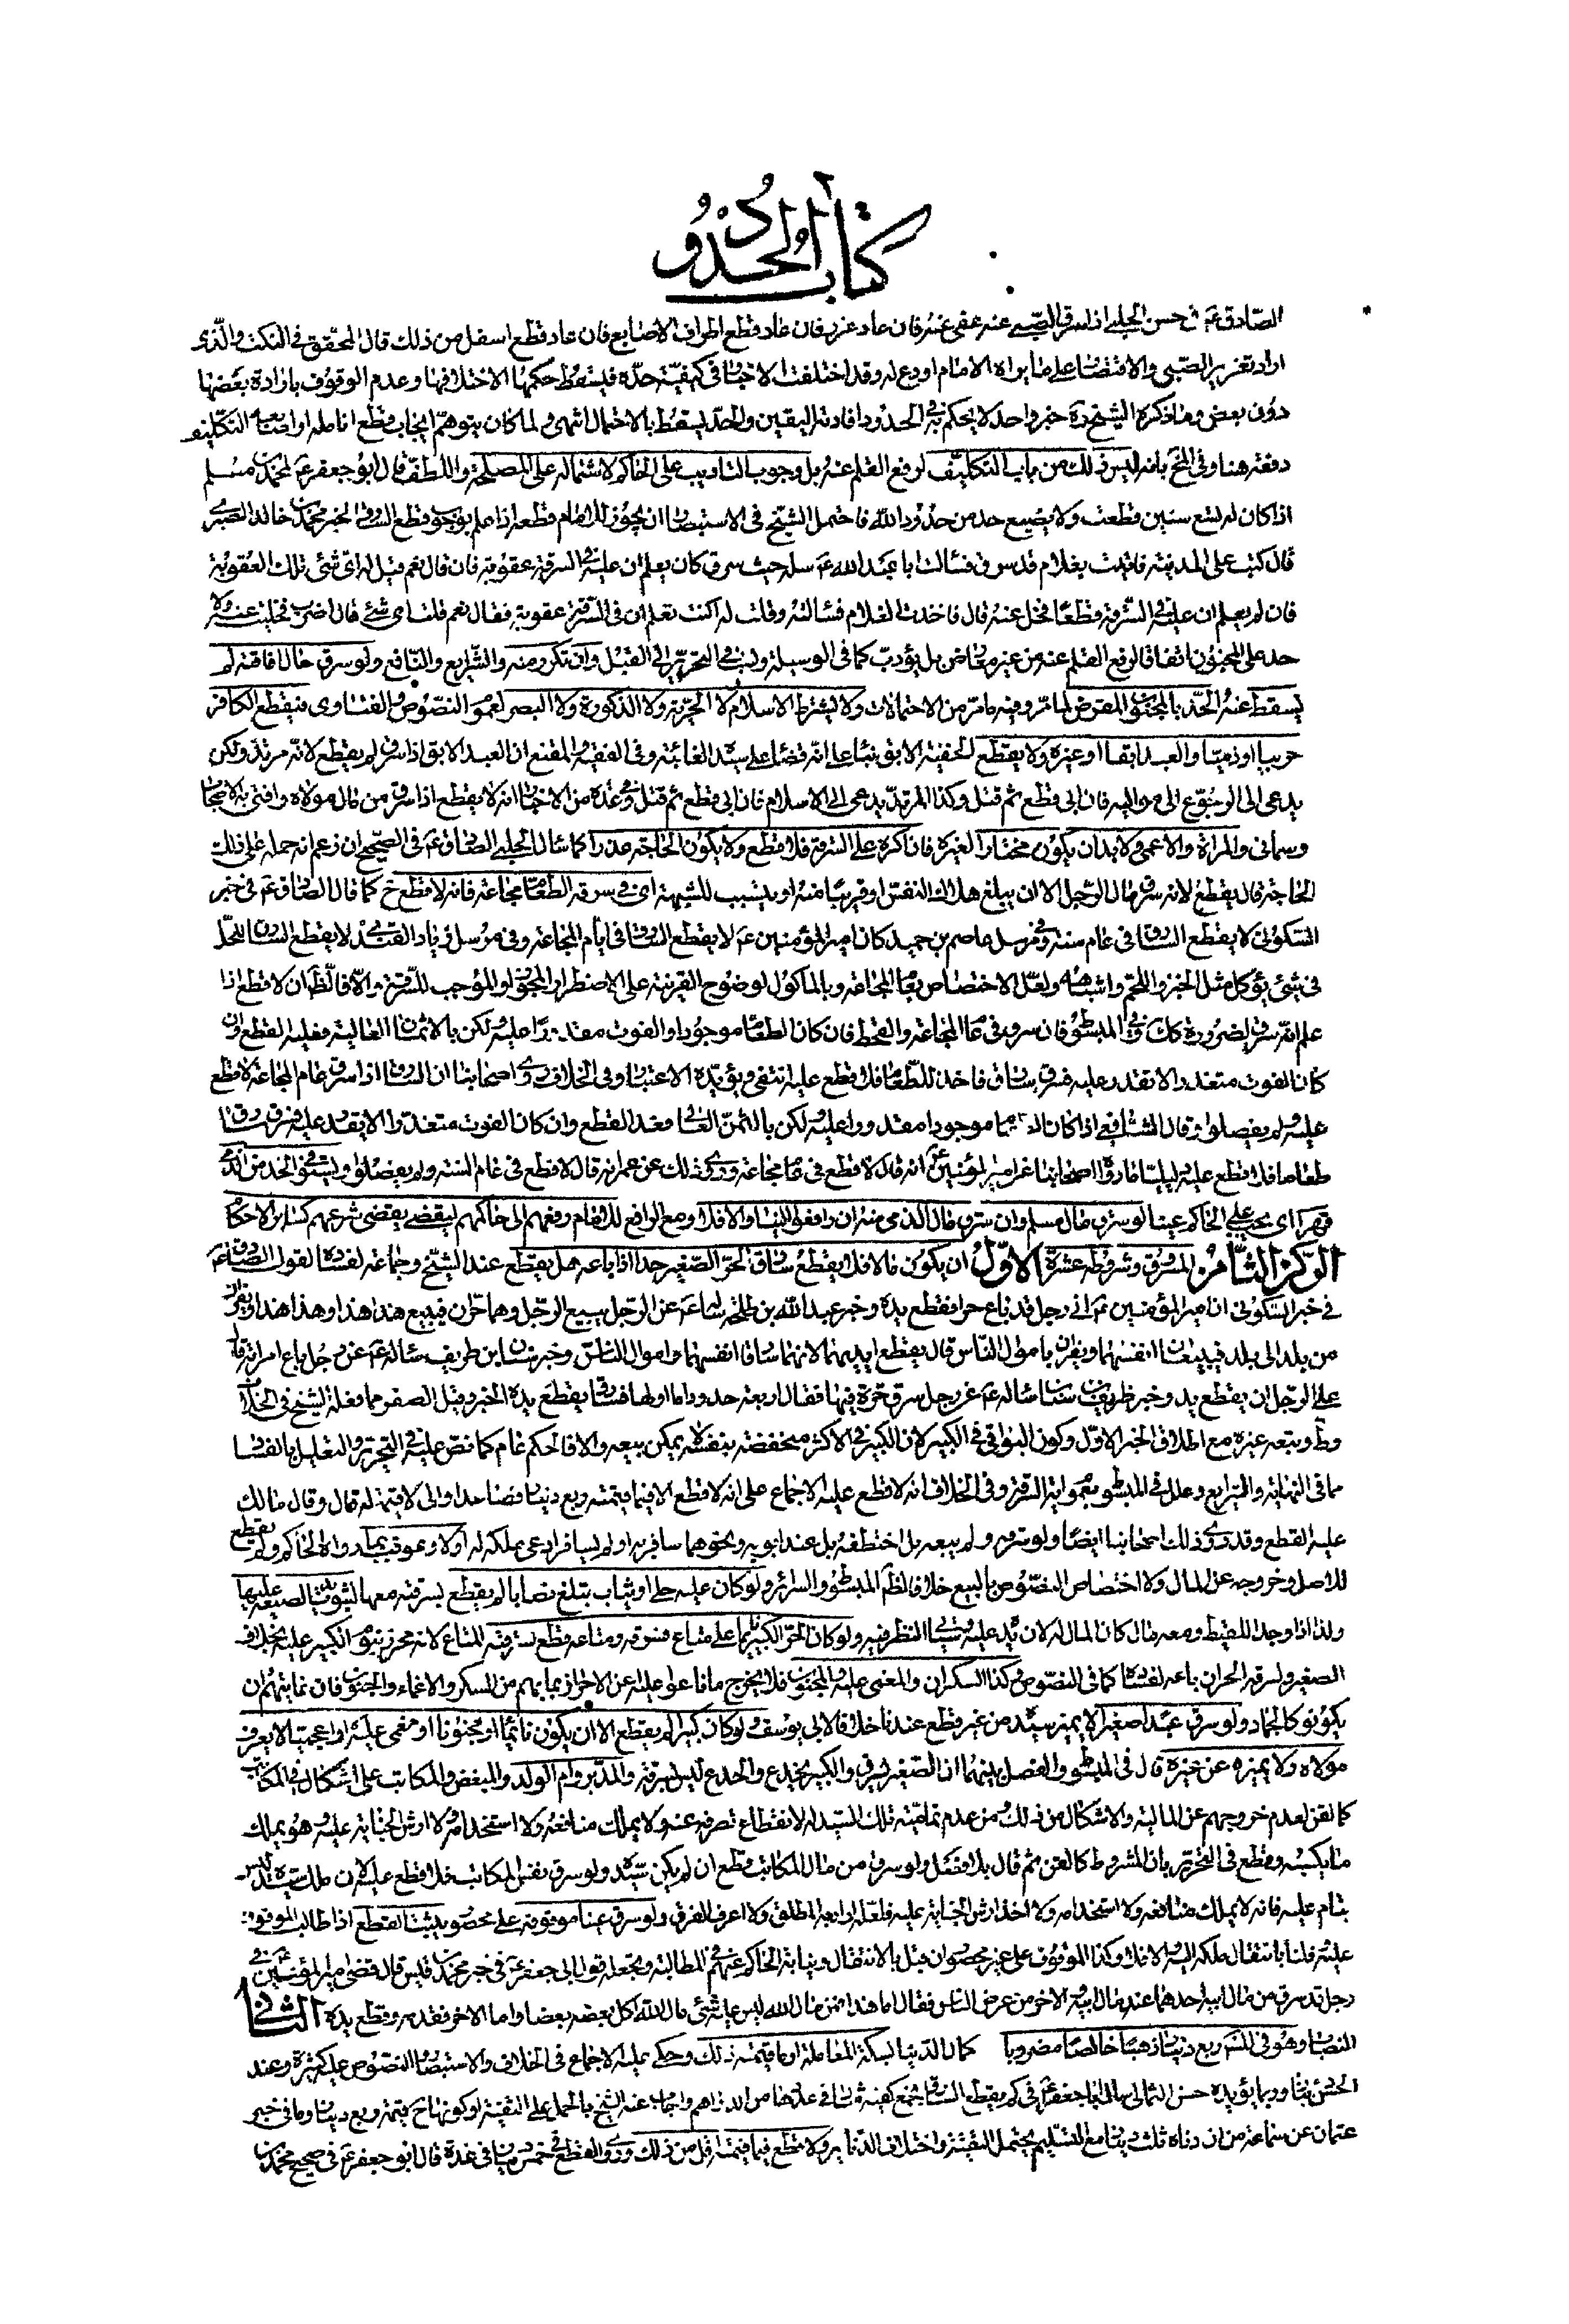 كتاب الحدود
الصادق ع في حسن الحلبي اذا سرق الصبي عنه عفى عنه فان عاد عزر فان عاد قطع اطراف الاصابع فان عاد قطع اسفل من ذلك قال المحقق في النكت والذي
اراه تعزير الصبي والاقتصار على ما يراه الامام اردع له وقد اختلفت الاخبار في كيفية حده فيسقط حكمها لاختلافها وعدم الوقوف بارادة بعضها
دون بعض وما ذكره الشيخ ره خبر واحد لا يحكم به في الحدود لعدم افادته اليقين والحد يسقط بالاحتمال انتهى ولما كان يتوهم ايجاب قطع انامله او اصابعه التكليف
دفعه هنا وفي التحرير بانه ليس ذلك من باب التكليف لرفع القلم عنه بل وجوب التاديب على الحاكم لاشتماله على المصلحة واللطف قال ابو جعفر ع لمحمد بن مسلم
اذا كان له تسع سنين قطعت ولا يضيع حد من حدود الله فاحتمل الشيخ في الاستبصار ان يجوز للامام قطعه اذا علم بوجوب قطع السارق لخبر محمد بن خالد القسري
قال كنت على المدينة فاتيت بغلام قد سرق فسالت ابا عبد الله ع سله حيث سرق كان يعلم ان عليه في السرقة عقوبة فان قال نعم قيل له اي شئ تلك العقوبة
فان لم يعلم ان عليه في السرقة قطعا فخل عنه قال فاخذت الغلام فسالته وقلت له اكنت تعلم ان في السرقة عقوبة فقال نعم قلت اي شئ قال اضرب فخليت عنه ولا
حد على المجنون اتفاقا لرفع القلم عنه من غير معارض بل يؤدب كما في الوسيلة ونسب في التحرير الى القيل وان تكرر منه والشرايع والنافع ولو سرق حال افاقته لم
يسقط عنه الحد بالجنون المعترض لما مر وفيه ما مر من الاحتمالات ولا يشترط الاسلام ولا الحرية ولا الذكورة ولا البصر لعموم النصوص والفتاوى فيقطع الكافر
حربيا او ذميا والعبد ابقا او غيره ولا يقطع الحنفية الابق بناء على انه قضاء على سيده الغائب وفي الفقيه والمقنع ان العبد الابق اذا سرق لم يقطع لانه مرتد ولكن
يدعى الى الرجوع الى مواليه فان ابى قطع ثم قتل وكذا المرتد يدعى الى الاسلام فان ابى قطع ثم قتل وفي عدة من الاخبار انه لا يقطع اذا سرق من مال مولاه وافتى به الاصحاب
وسياتي والمراة والاعمى ولا بد ان يكون مختارا لغيره فان اكره على السرقة فلا قطع ولا يكون الحاجة عذرا كما سال الحلبي الصادق ع في الصحيح ان زعم انه حمله على ذلك
الحاجة قال يقطع لانه سرق مال الرجل الا ان يبلغ هلاك النفس او قريبا منه او يتسبب للشبهة اي في سرقة الطعام مجاعة فانه لا قطع ح كما قال الصادق ع في خبر
السكوني لا يقطع السارق في عام سنة وفي مرسل عاصم بن حميد كان امير المؤمنين ع لا يقطع السارق في ايام المجاعة وفي مرسل زياد القندي لا يقطع السارق في سنة المحل
في شئ يؤكل مثل الخبز واللحم واشباهه ولعل الاختصاص بعام المجاعة وبالماكول لوضوح القرينة على الاضطرار المجوز او الموجب للسرقة والا فالظ ان لا قطع اذا
علم انه سرق لضرورة كك وفي المبسوط فان سرق في عام المجاعة والقحط فان كان الطعام موجودا والقوت مقدورا عليه لكن بالاثمان الغالية فعليه القطع وان
كان القوت متعذرا لا يقدر عليه فسرق سارق فاخذ الطعام فلا قطع عليه انتهى ويؤيده الاعتبار وفي الخلاف روى اصحابنا ان السارق اذا سرق عام المجاعة لا قطع
عليه ولم يفصلوا وقال الشافعي اذا كان الطعام موجودا مقدورا عليه ولكن بالثمن الغالي فعليه القطع وان كان القوت متعذرا لا يقدر عليه فسرق سارق
طعاما فلا قطع عليه دليلنا ما رواه اصحابنا عن امير المؤمنين ع انه قال لا قطع في عام مجاعة وروى ذلك عن عمر انه قال لا قطع في عام السنة ولم يفصلوا ويستوفى الحد من الذمي
قهرا اي يجب على الحاكم عينا لو سرق مال مسلم وان سرق مال الذمي منه ان رافعوا الينا والا فلا ومع الرافع للامام رفعهم الى حاكمهم ليقضي بمقتضى شرعهم كسائر الاحكام
الركن الثامن المسروق وشروطه عشرة الاول ان يكون مالا فلا يقطع سارق الحر الصغير حدا اذا باعه هل يقطع عند الشيخ وجماعة لفساده لقول الصادق ع
في خبر السكوني ان امير المؤمنين ع اتي برجل قد باع حرا فقطع يده وخبر عبد الله بن طلحة ساله ع عن الرجل يبيع الرجل وهما حران فيبيع هذا هذا وهذا هذا ويفران
من بلد الى بلد فيبيعان انفسهما ويفران باموال الناس قال يقطع ايديهما لانهما سارقا انفسهما واموال الناس وخبر سنان بن طريف ساله ع عن رجل باع امراته قال
على الرجل ان يقطع يده وخبر طريف بن سنان ساله ع عن رجل سرق حرة فباعها فقال اربعة حدود اما اولها فسارق يقطع يده الخبر وقيل القصر مما فعله الشيخ في الخلاف
وط وتبعه غيره مع اطلاق الخبر الاول وكون البواقي في الكبير لان الكبير في الاكثر متحفظ بنفسه لا يمكن بيعه والا فالحكم عام كما نص عليه في التحرير والتعليل بالفساد
مما في النهاية والشرايع وعلل في المبسوط بعموم اية السرقة وفي الخلاف انه لا قطع عليه للاجماع على انه لا قطع الا فيما قيمته ربع دينار فصاعدا والحر لا قيمة له قال وقال مالك
عليه القطع وقد روى ذلك اصحابنا ايضا ولو سرقه ولم يبعه بل اختطفه بل عند ابويه ونحوهما سافر به او لم يسافر ادعى ملكه له او لا وعوقب بما يراه الحاكم ولم يقطع
للاصل وخروجه عن المال ولاختصاص النصوص بالبيع خلافا لظ المبسوط والسرائر ولو كان عليه حلى او ثياب تبلغ نصابا لم يقطع بسرقته معها لثبوت يد الصبي عليها
ولذا اذا وجد اللقيط ومعه مال كان المال له لان يده عليه وسياتي النظر فيه ولو كان الحر الكبير نائما على متاع فسرقه ومتاعه قطع بسرقته للمتاع لانه محرز بنوم الكبير عليه بخلاف
الصغير ولسرقة الحر ان باعه لفساده كما في النصوص وكذا السكران والمغمى عليه والمجنون فلا يخرج ما ناموا عليه عن الاحراز بما بهم من السكر والاغماء والجنون فان غايتهم ان
يكونوا كالجماد ولو سرق عبدا صغيرا لا يميز سيده من غيره قطع عندنا خلافا لابي يوسف ولو كان كبيرا لم يقطع الا ان يكون نائما او مجنونا او مغمى عليه او اعجميا لا يعرف
مولاه ولا يميزه عن غيره قال في المبسوط والفصل بينهما ان الصغير يسرق والكبير يخدع والخدع ليس بسرقة والمدبر وام الولد والمبعض والمكاتب على اشكال في المكاتب
كالقن لعدم خروجهم عن المالية والاشكال من ذلك ومن عدم تمامية ملك السيد له لانقطاع تصرفه عنه ولا يملك منافعه ولا استخدامه ولا ارش الجناية عليه وهو يملك
ما يكسبه وقطع في التحرير بان المشروط كالقن ثم قال بلا فصل ولو سرق من مال المكاتب قطع ان لم يكن سيده ولو سرق نفس المكاتب فلا قطع عليه لان ملك سيده ليس
بتام عليه فانه لا يملك منافعه ولا استخدامه ولا اخذ ارش الجناية عليه فلعله اراد به المطلق ولا اعرف الفرق ولو سرق عينا موقوفة على محصور يثبت القطع اذا طالب الموقوف
عليه قلنا بانتقال ملكه اليه اولا وكذا الموقوف على غير محصور ان قيل بالانتقال وبنيابة الحاكم عنهم في المطالبة ويجعله قول ابي جعفر ع في خبر محمد بن قيس قال قضى امير المؤمنين ع في
رجل قد سرق من مال الله احدهما عبد مال الله والاخر من عرض الناس فقال اما هذا فمن مال الله ليس عليه شئ مال الله اكل بعضه بعضا واما الاخر فقدمه وقطع يده الثاني
النصاب وهو في المشهور ربع دينار ذهبا خالصا مضروبا كمال الدينار بسكة المعاملة او ما قيمته ذلك وحكى عليه الاجماع في الخلاف والاستبصار والنصوص عليه كثيرة وعند
الحسن دينار وربما يؤيده حسن الثمالي سال ابا جعفر ع في كم يقطع السارق فجمع كفيه ثم قال في عددها من الدراهم واجاب عنه الشيخ بالحمل على التقية او كونها ح قيمة ربع دينار وما في خبر
عثمان عن سماعة من ان ادناه ثلث دينار مع التسليم يحتمل التقية واختلاف الدنانير ولا قطع فيما قيمته اقل من ذلك وروى القطع في خمس دينار في عدة قال ابو جعفر ع في صحيح محمد بن